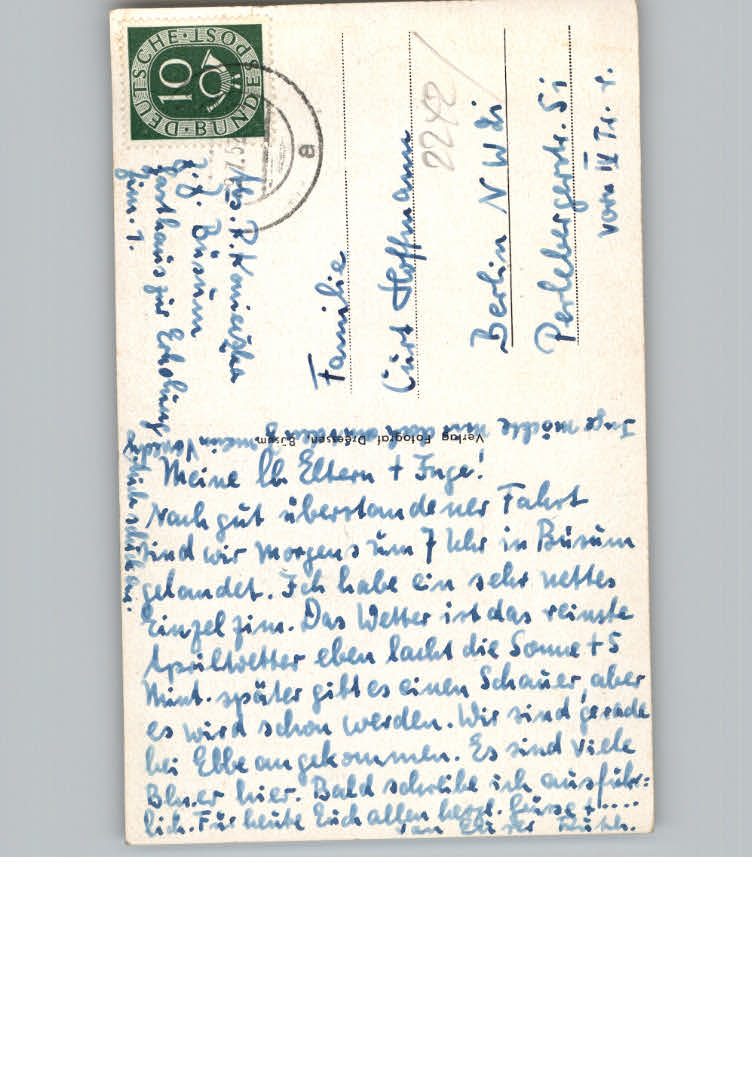 Meine lb. Eltern + Inge!
Nach gut überstandener Fahrt
sind wir morgens um 7 Uhr in Büsum
gelandet. Ich habe ein sehr nettes
Einzelzim. Das Wetter ist das reinste
Aprilwetter eben lacht die Sonne + 5
Mint. später gibt es einen Schauer, aber
es wird schon werden. Wir sind gerade
bei Ebbe angekommen. Es sind viele
Bln.er hier. Bald schreibe ich ausführ=
lich. Für heute Euch allen herzl. Grüsse + ....
von Eurer Ruth.
Inge möchte mein
schick
Verlag Fotograf Dreesen, Büsum
DEUTSCHE · BUNDESPOST
10
a
Abs. R.
z. Z. Büsum
Gasthaus zur Erholung
Zim. 1.
Familie
Curt Hoffmann
2242
Berlin NW
Perlebergerstr. 51
vorn IV Tr. r.